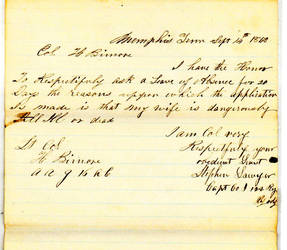 Memphis Tenn Sept 14th 186
Col H Binmore
I have the Honor
To Respectifuly ask a Leave of Absence for 20
Days the reasons uppon which the application
Is made is that my wife is dangerously
Ill or dead
I am Col very
Respectfuly your
obedient Servt
Stephen Sawyer
Capt Co I
Lt Col
H Binmore
A A G 16 A C